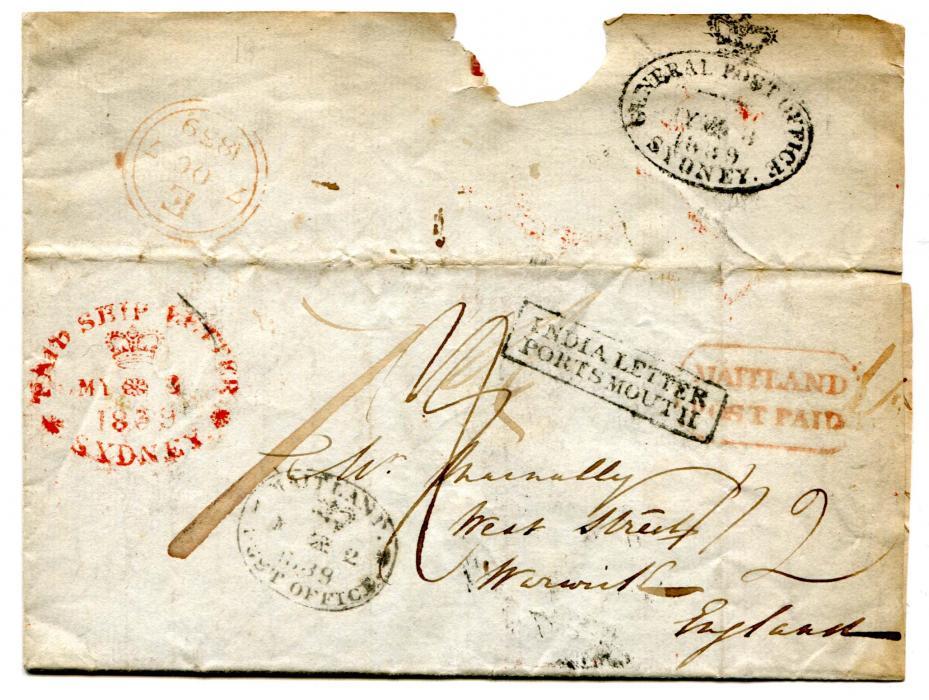 GENERAL POST OFFICE
MY 3
1839
SYDNEY.
E
7 OC 7
1839
PAID SHIP LETTER
MY 3
1839
SYDNEY
INDIA LETTER
PORTSMOUTH
MAITLAND
POST PAID
MAITLAND.
2
1839
POST OFFICE
Mr.
West Street
Warwick
England